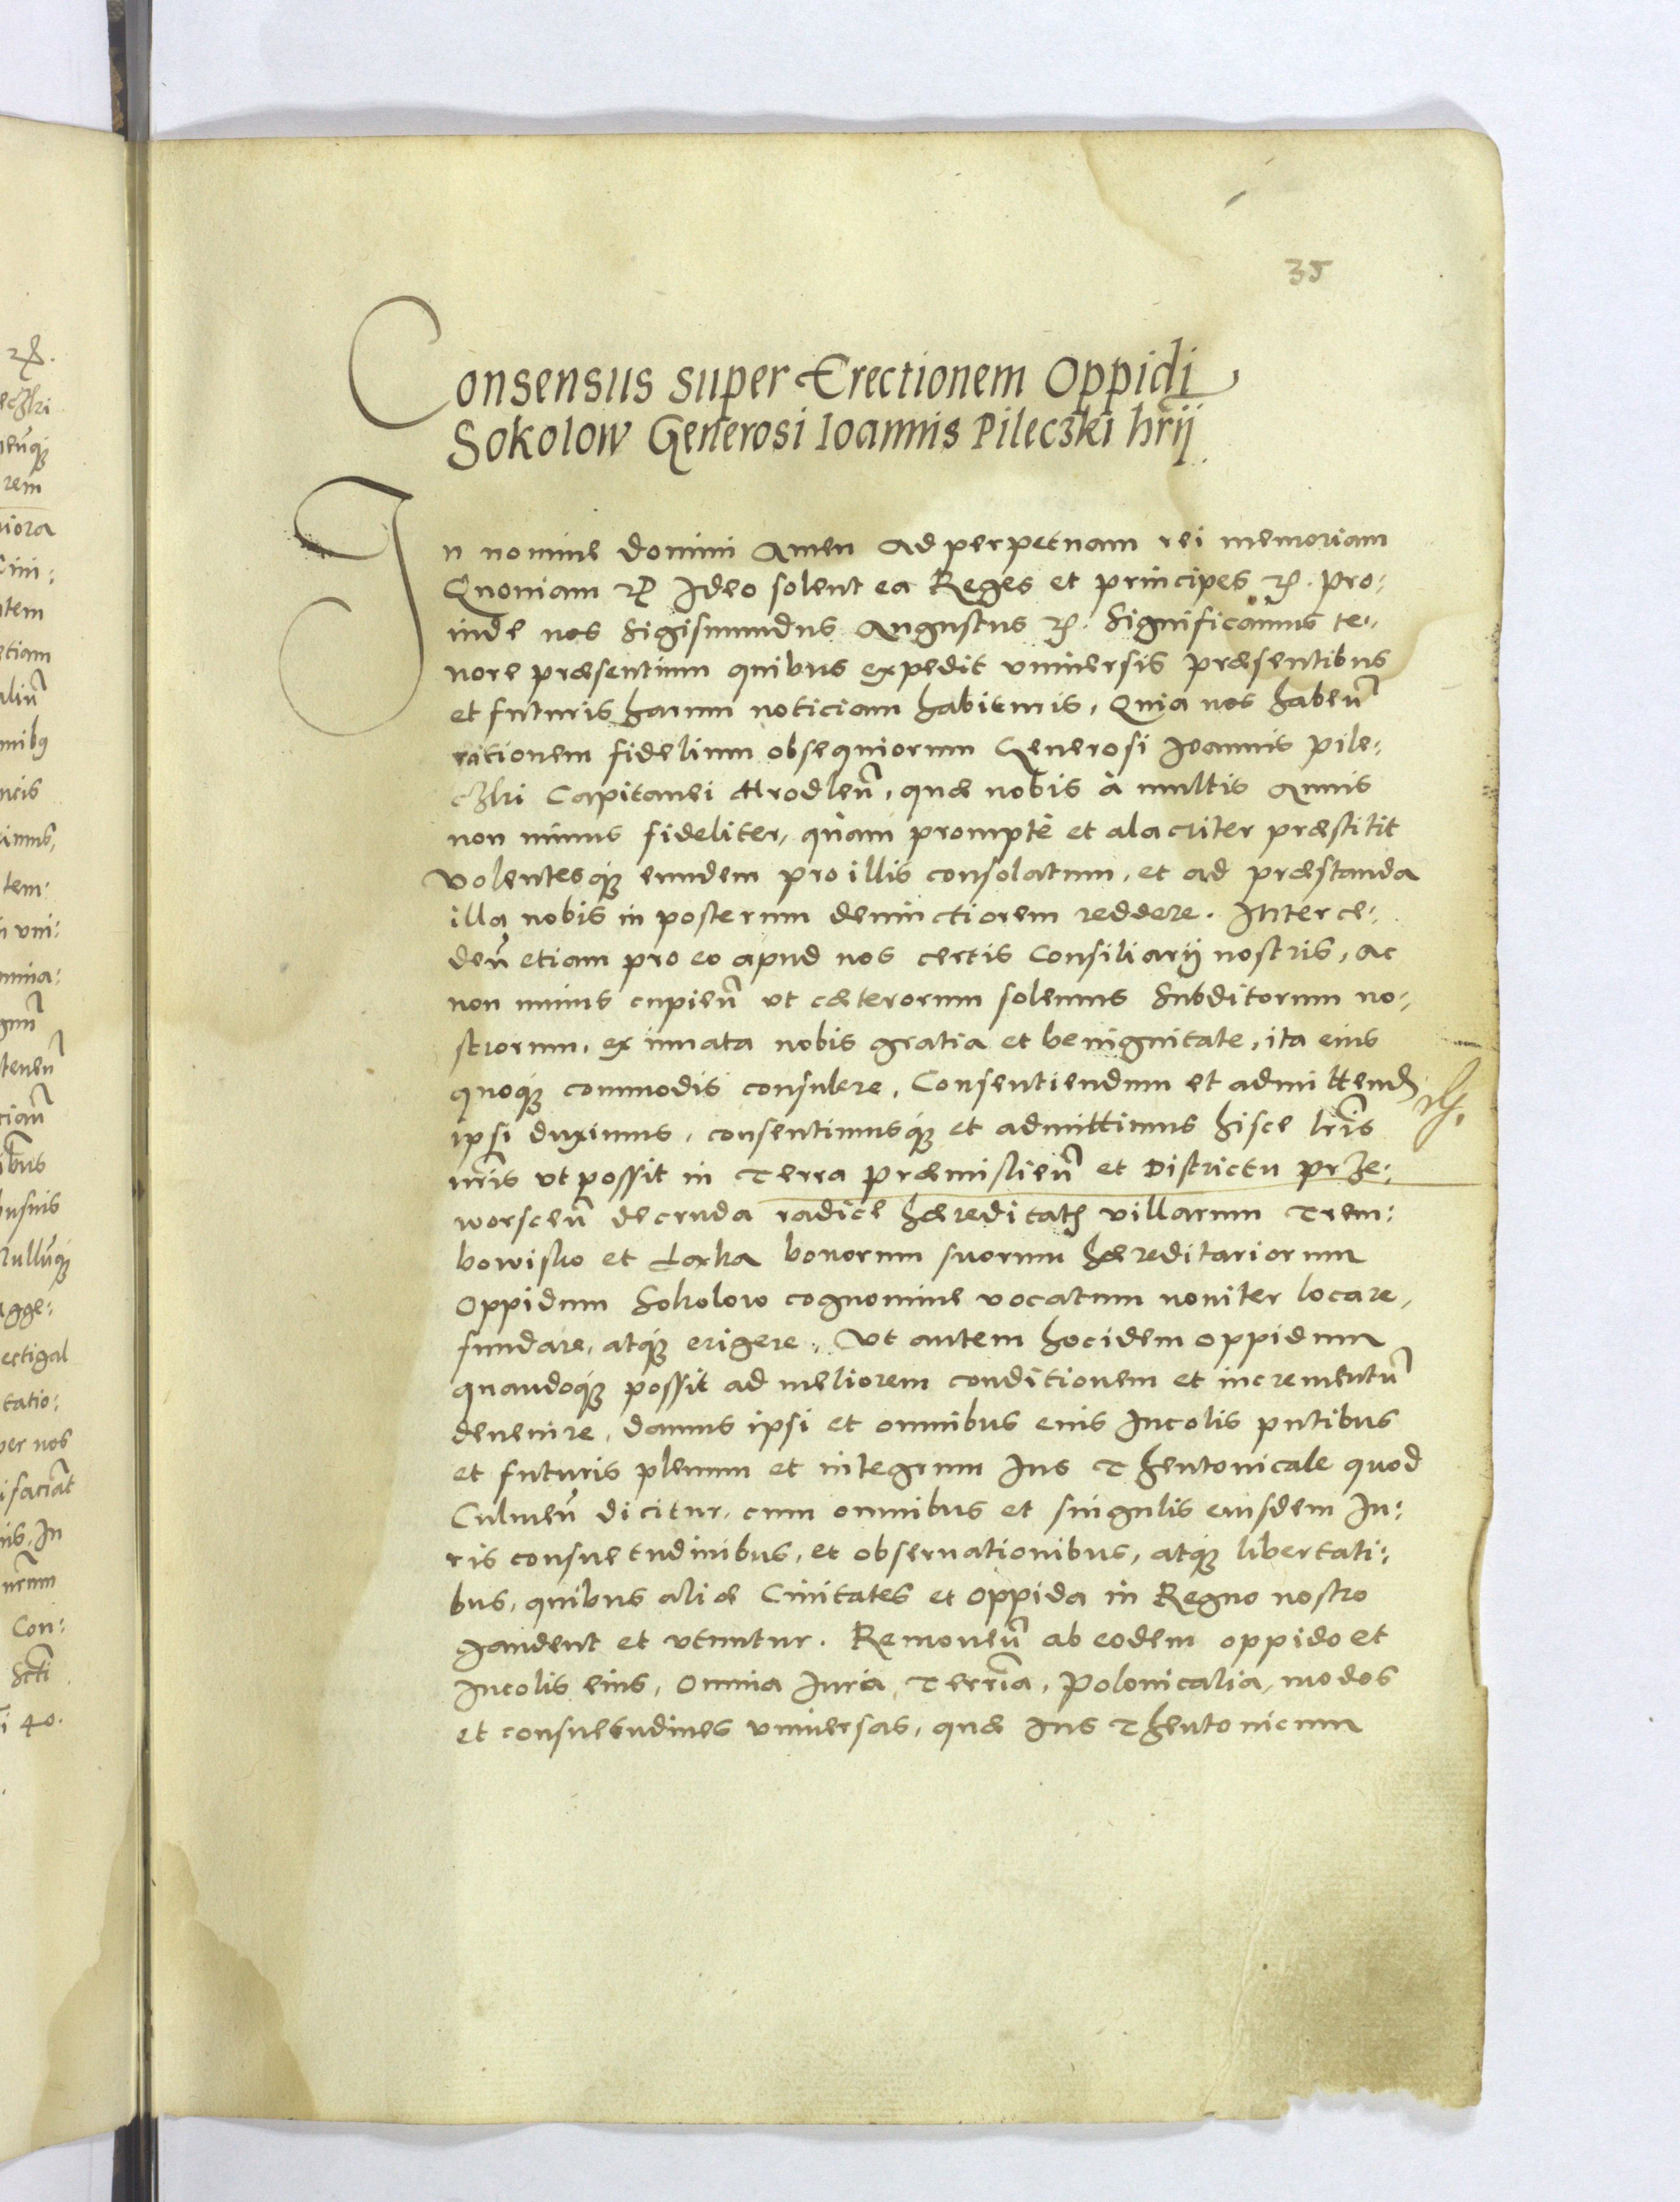 35
Consensus super Erectionem Oppidi
Sokolow Generosi Ioannis Pileczki hrij
In nomine domini Amen Ad perpetuam rei memoriam
Quoniam etc Ideo solent ea Reges et principes etc. Pro:
inde nos Sigismundus Augustus etc. Significamus te:
nore præsentium quibus expedit vniuersis præsentibus
et futuris harum noticiam habituris, Quia nos habeñ
rationem fidelium obsequiorum Generosi Ioannis Pile:
czki Capitanei Hrodleñ, quæ nobis à multis annis
non minus fideliter, quàm promptè et alacriter præstitit
volentesq́ꝫ eundem pro illis consolatum, et ad præstanda
illa nobis in posterum deuinctiorem reddere. Interce:
deñ etiam pro eo apud nos certis Consiliarij nostris, ac
non minus cupieñ vt cæterorum solemus Subditorum no:
strorum, ex innata nobis gratia et benignitate, ita eius
quoq́ꝫ commodis consulere, Consentiendum et admittend
ipsi duximus, consentimusq́ꝫ et admittimus hisce lr̃is
nr̃is vt possit in Terra Præmislieñ et Districtu prze:
worsceñ de cruda radice hæreditatꝭ villarum Trem:
bowisko et Łaka bonorum suorum hæreditariorum
Oppidum Sokolow cognomine vocatum nouiter locare,
fundare, atq́ꝫ erigere, Vt autem hocidem oppidum
quandoq́ꝫ possit ad meliorem conditionem et incrementũ
deuenire, damus ipsi et omnibus eius Incolis pntibus
et futuris plenum et integrum Ius Theutonicale quod
Culmeñ dicitur, cum omnibus et singulis eiusdem Iu:
ris consuetudinibus, et obseruationibus, atq́ꝫ libertati:
bus, quibus aliæ Ciuitates et Oppida in Regno nostro
gaudent et vtuntur. Remoueñ ab eodem oppido et
Incolis eius, Omnia Iura Terrr̃ia, Polonicalia, modos
et consuetudines vniuersas, quæ Ius Theutonicum